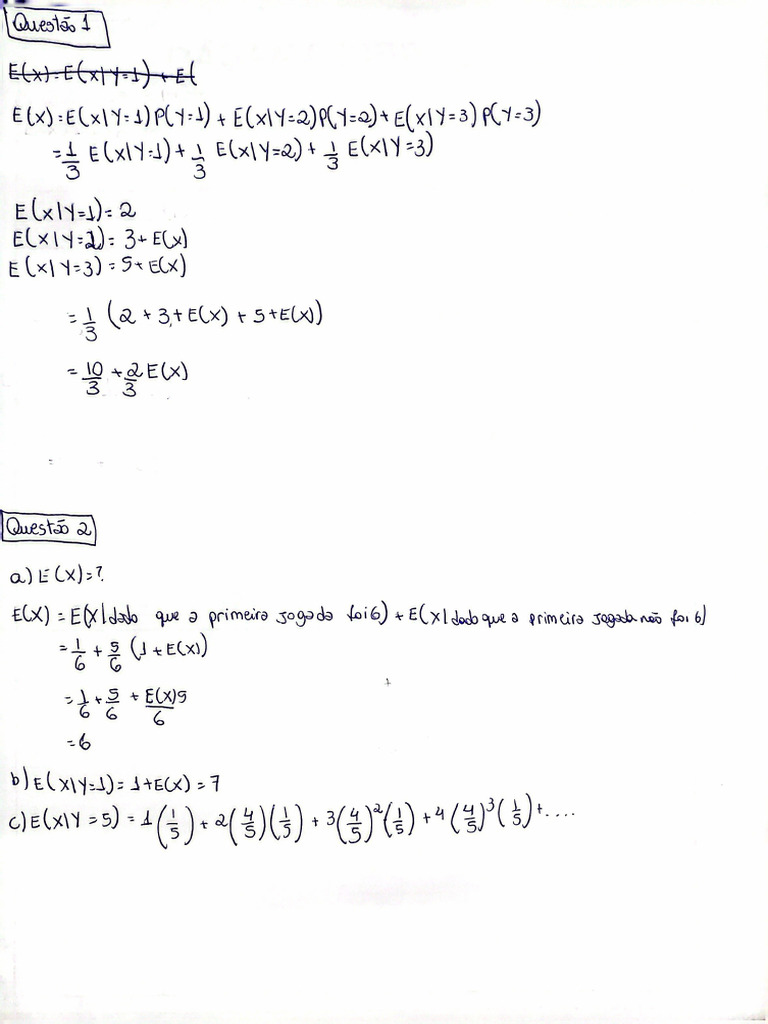 Questão 1
E(x)=E(x|Y=1)+E(
E(x)=E(x|Y=1)P(Y=1)+E(x|Y=2)P(Y=2)+E(x|Y=3)P(Y=3)
=1/3 E(x|Y=1)+1/3 E(x|Y=2)+1/3 E(x|Y=3)
E(x|Y=1)=2
E(x|Y=2)=3+E(x)
E(x|Y=3)=5+E(x)
=1/3 (2+3+E(x)+5+E(x))
=10/3+2/3 E(x)
Questão 2
a) E(x)=?
E(x)=E(x|dado que a primeira jogada foi 6)+E(x|dado que a primeira jogada não foi 6)
=1/6+5/6 (1+E(x))
=1/6+5/6+E(x)5/6
=6
b) E(x|Y=1)=1+E(x)=7
c) E(x|Y=5)=1(1/5)+2(4/5)(1/5)+3(4/5)²(1/5)+4(4/5)³(1/5)+....